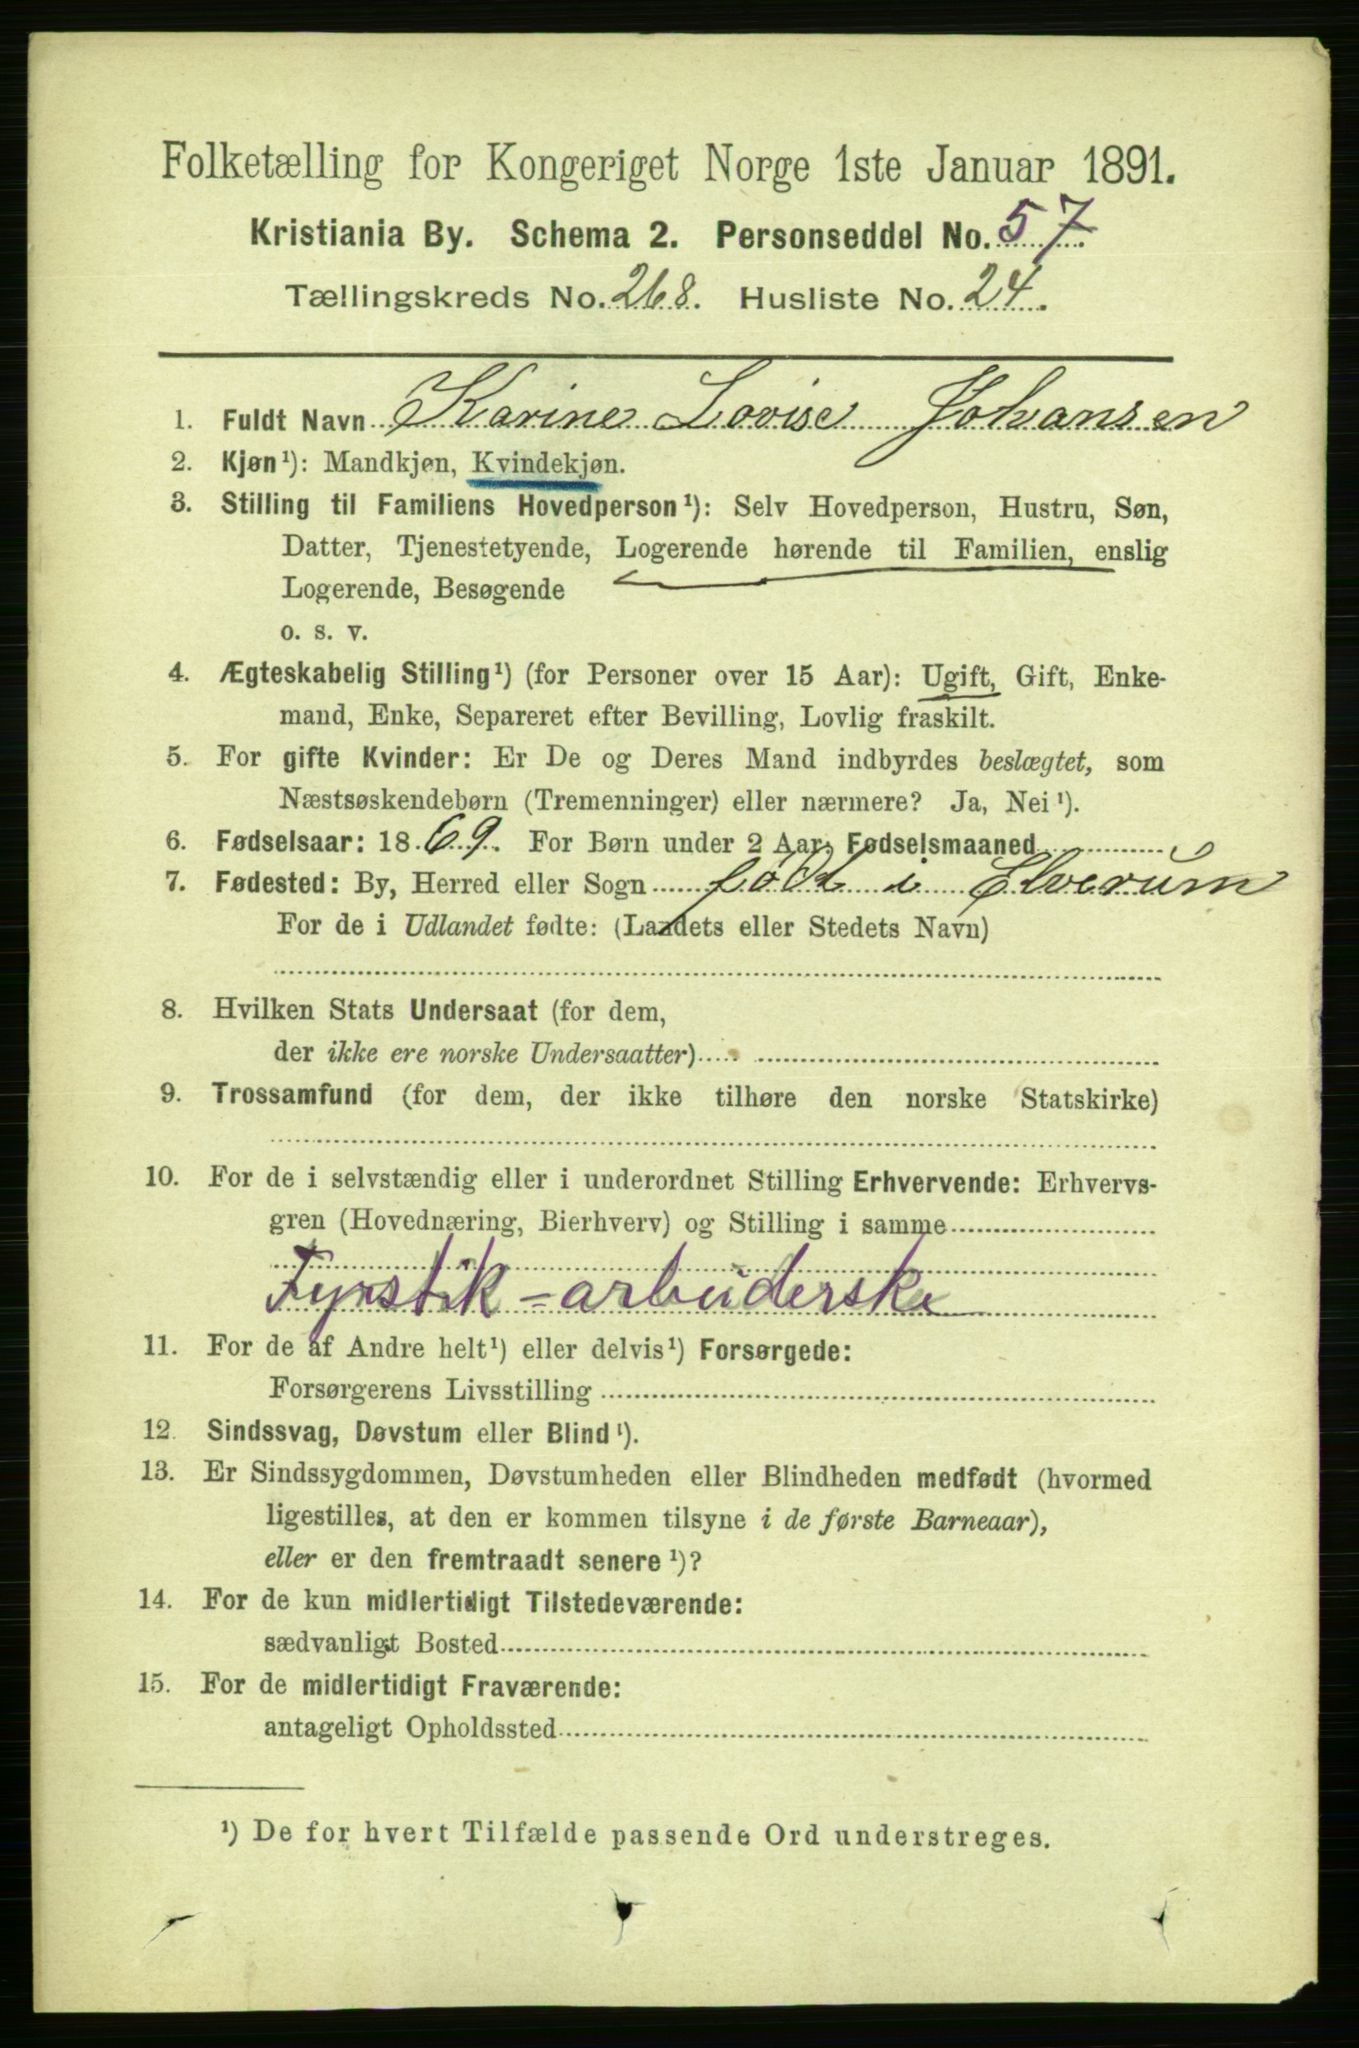 Folketælling for Kongeriget Norge 1ste Januar 1891.
Kristiania By. Schema 2. Personseddel No. 57.
Tællingskreds No. 268. Husliste No. 24.
1. Fuldt Navn Karine Lovise Johansen
2. Kjøn¹): Mandkjøn, Kvindekjøn.
3. Stilling til Familiens Hovedperson¹): Selv Hovedperson, Hustru, Søn,
Datter, Tjenestetyende, Logerende hørende til Familien, enslig
Logerende, Besøgende
o. s. v.
4. Ægteskabelig Stilling¹) (for Personer over 15 Aar): Ugift, Gift, Enke-
mand, Enke, Separeret efter Bevilling, Lovlig fraskilt.
5. For gifte Kvinder: Er De og Deres Mand indbyrdes beslægtet, som
Næstsøskendebørn (Tremenninger) eller nærmere? Ja, Nei¹).
6. Fødselsaar: 1869. For Børn under 2 Aar: Fødselsmaaned
7. Fødested: By, Herred eller Sogn født i Elverum
For de i Udlandet fødte: (Landets eller Stedets Navn)
8. Hvilken Stats Undersaat (for dem,
der ikke ere norske Undersaatter)
9. Trossamfund (for dem, der ikke tilhøre den norske Statskirke)
10. For de i selvstændig eller i underordnet Stilling Erhvervende: Erhvervs-
gren (Hovednæring, Bierhverv) og Stilling i samme
Fyrstik-arbeiderske
11. For de af Andre helt¹) eller delvis¹) Forsørgede:
Forsørgerens Livsstilling
12. Sindssvag, Døvstum eller Blind¹).
13. Er Sindssygdommen, Døvstumheden eller Blindheden medfødt (hvormed
ligestilles, at den er kommen tilsyne i de første Barneaar),
eller er den fremtraadt senere¹)?
14. For de kun midlertidigt Tilstedeværende:
sædvanligt Bosted
15. For de midlertidigt Fraværende:
antageligt Opholdssted
¹) De for hvert Tilfælde passende Ord understreges.